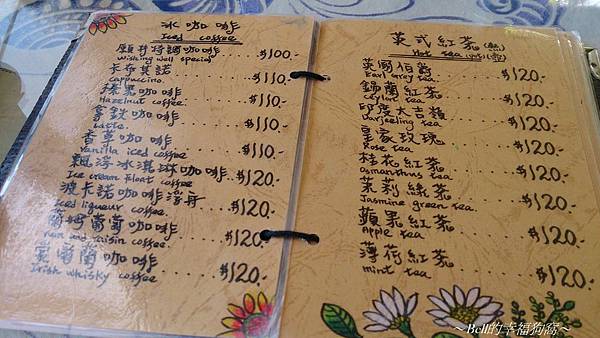 冰咖啡
Iced coffee
願井特調咖啡 $100.-
Wishing well special
卡布其諾 $110.-
cappuccino.
榛果咖啡 $110.-
Hazelnut coffee.
拿鈦咖啡 $110.-
Latte.
香草咖啡 $110.-
Vanilla iced coffee
飄浮冰淇琳咖啡 $120.-
Ice cream float coffee
波卡諾咖啡 $120.-
Iced liqueur coffee.
蘭姆葡萄咖啡 $120.-
rum and raisin coffee.
愛爾蘭咖啡 $120.-
Irish whisky coffee
英式紅茶(熱)
Hot tea
英國伯爵 $120.-
Earl grey tea
錫蘭紅茶 $120.-
Ceylon tea
印度大吉嶺 $120.-
Darjeeling tea
皇家玫瑰 $120.-
Rose tea
桂花紅茶 $120.-
Osmanthus tea
茉莉綠茶 $120.-
Jasmine green tea.
蘋果紅茶 $120.-
Apple tea
薄荷紅茶 $120.-
mint tea
～Bell的幸福狗窩～